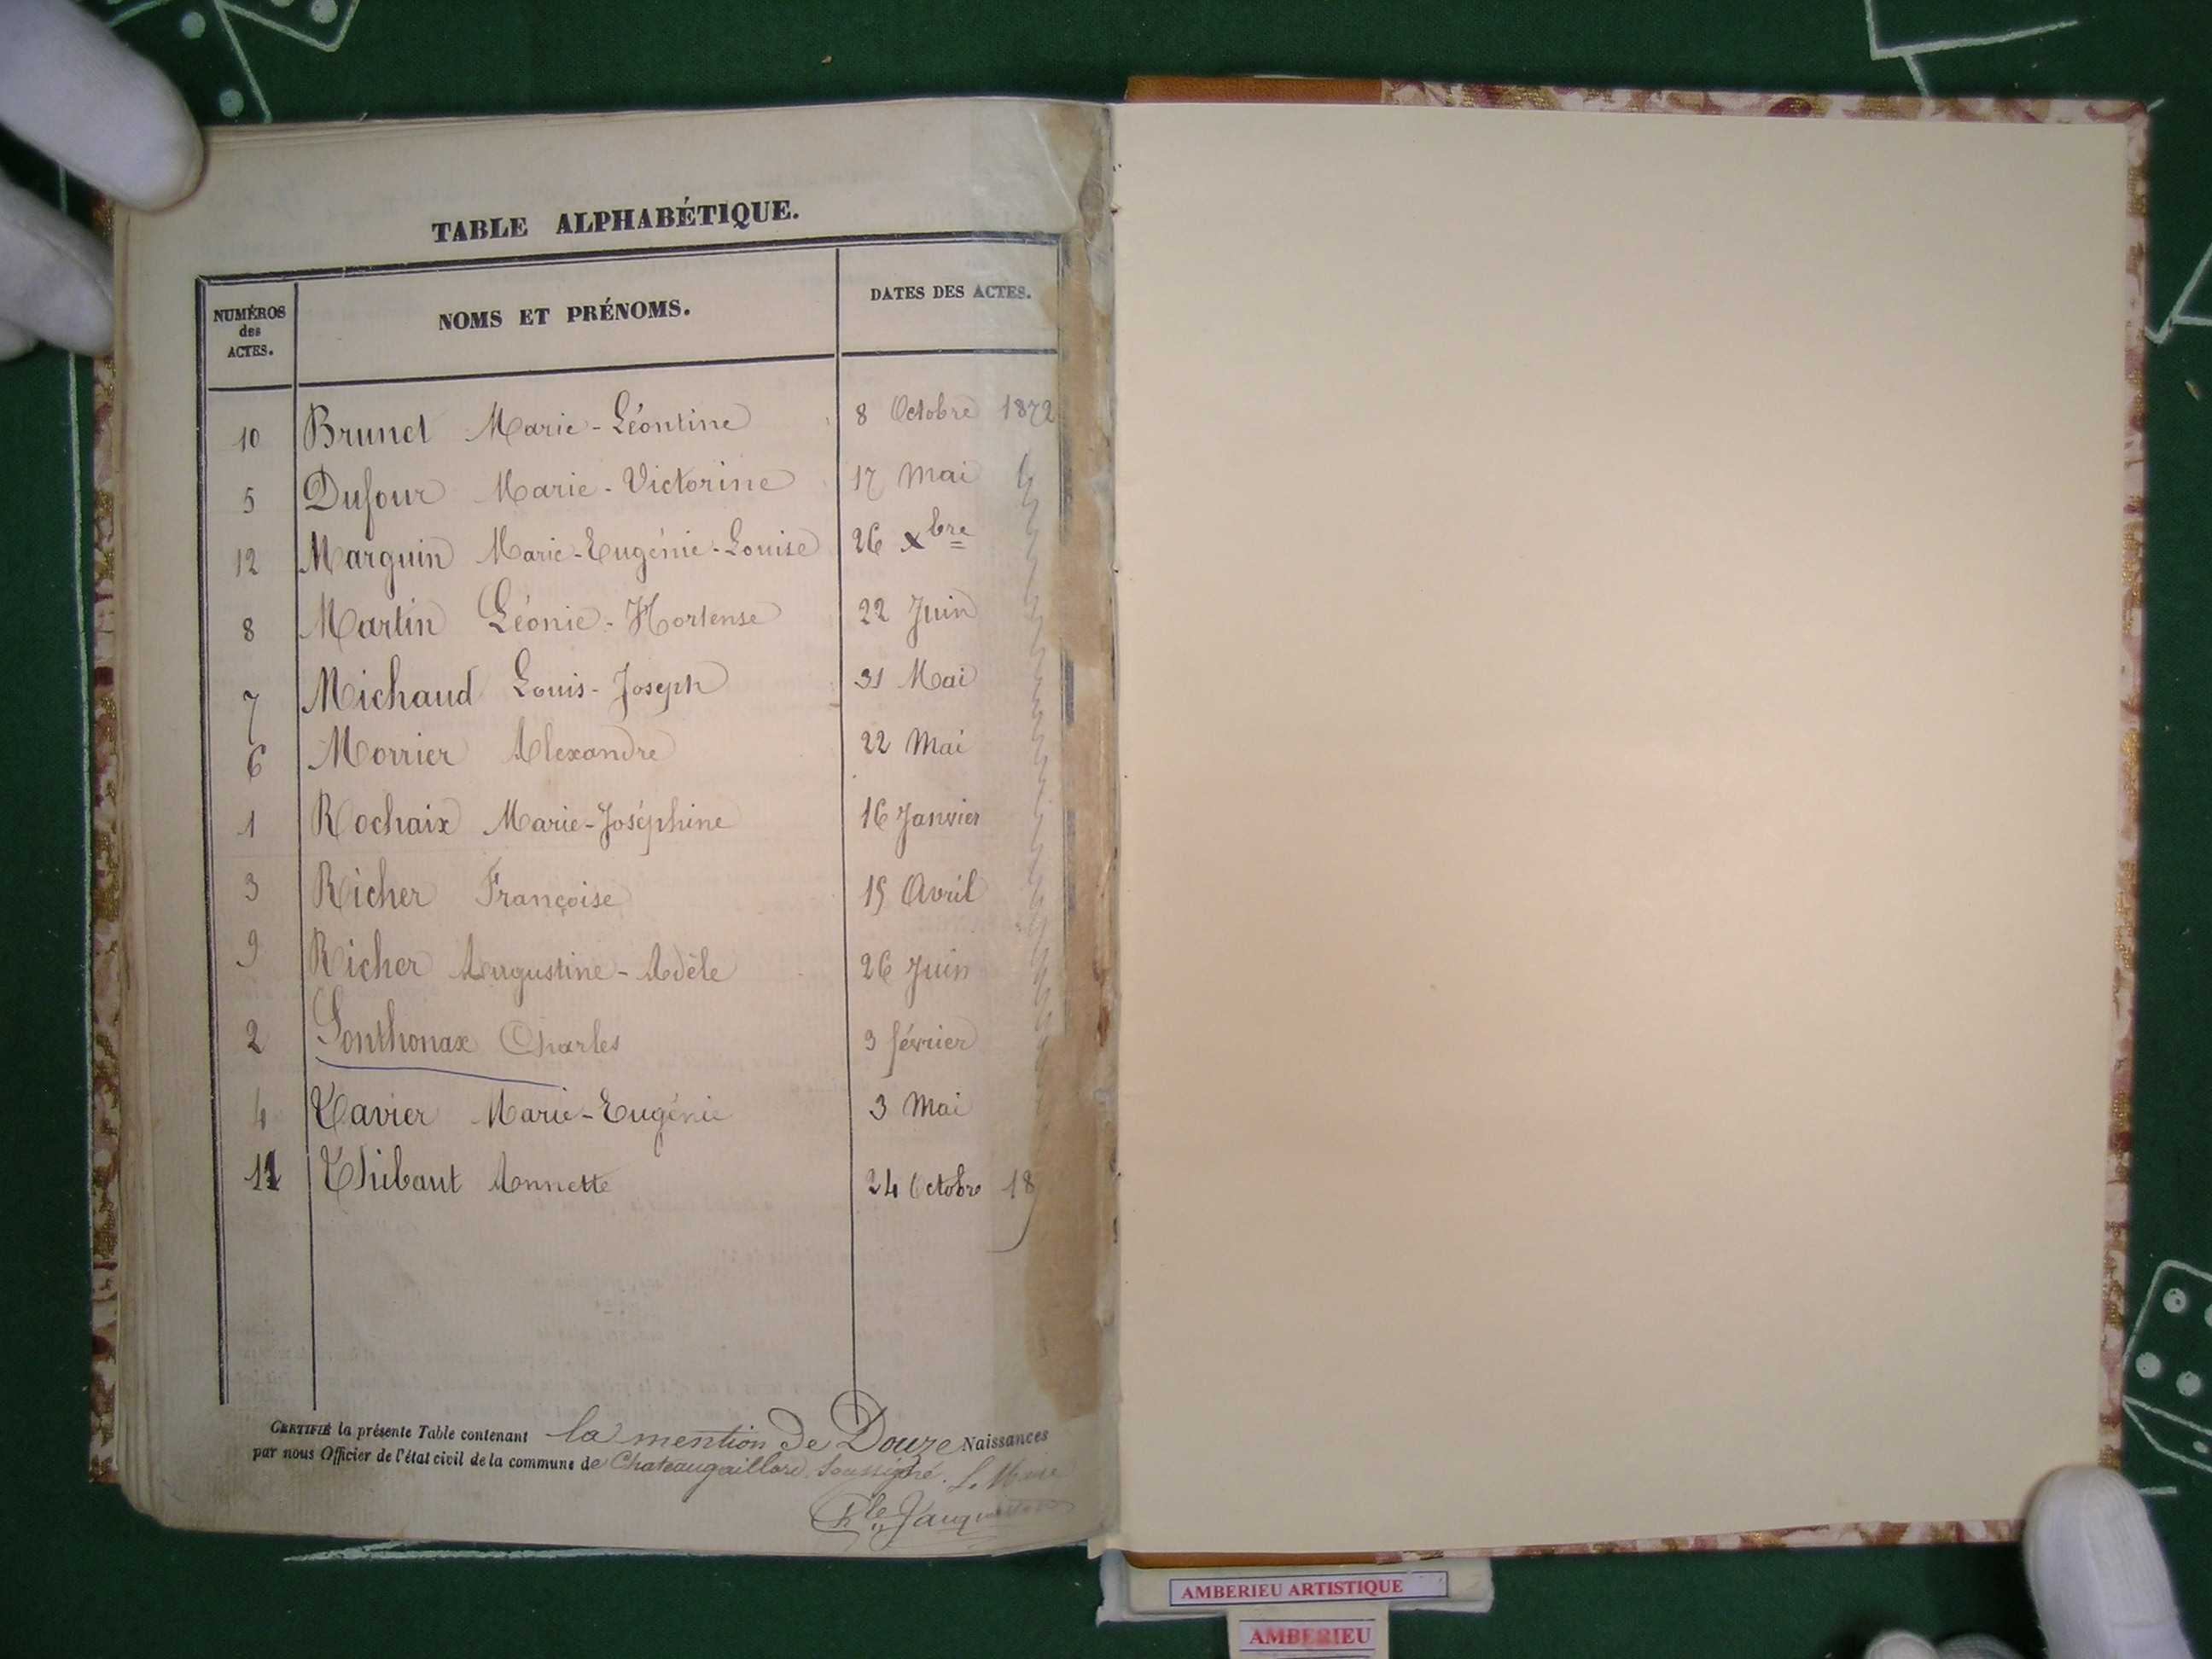 TABLE ALPHABÉTIQUE.
NUMÉROS des ACTES.
NOMS ET PRÉNOMS.
DATES DES ACTES.
10 Brunet Marie-Léontine 8 Octobre 1872
5 Dufour Marie-Victorine 17 Mai
12 Marguin Marie-Eugénie-Louise 26 Xbre
8 Martin Léonie-Hortense 22 Juin
7 Michaud Louis-Joseph 31 Mai
6 Morrier Alexandre 22 Mai
1 Rochaix Marie-Joséphine 16 Janvier
3 Richer Françoise 15 Avril
9 Richer Augustine-Adèle 26 Juin
2 Sonthonax Charles 3 février
4 Tavier Marie-Eugénie 3 Mai
11 Thibaut Annette 24 Octobre 18
CERTIFIÉ la présente Table contenant la mention de Douze Naissances
par nous Officier de l'état civil de la commune de Chateaugaillard soussigné. Le Maire
AMBERIEU ARTISTIQUE
AMBERIEU